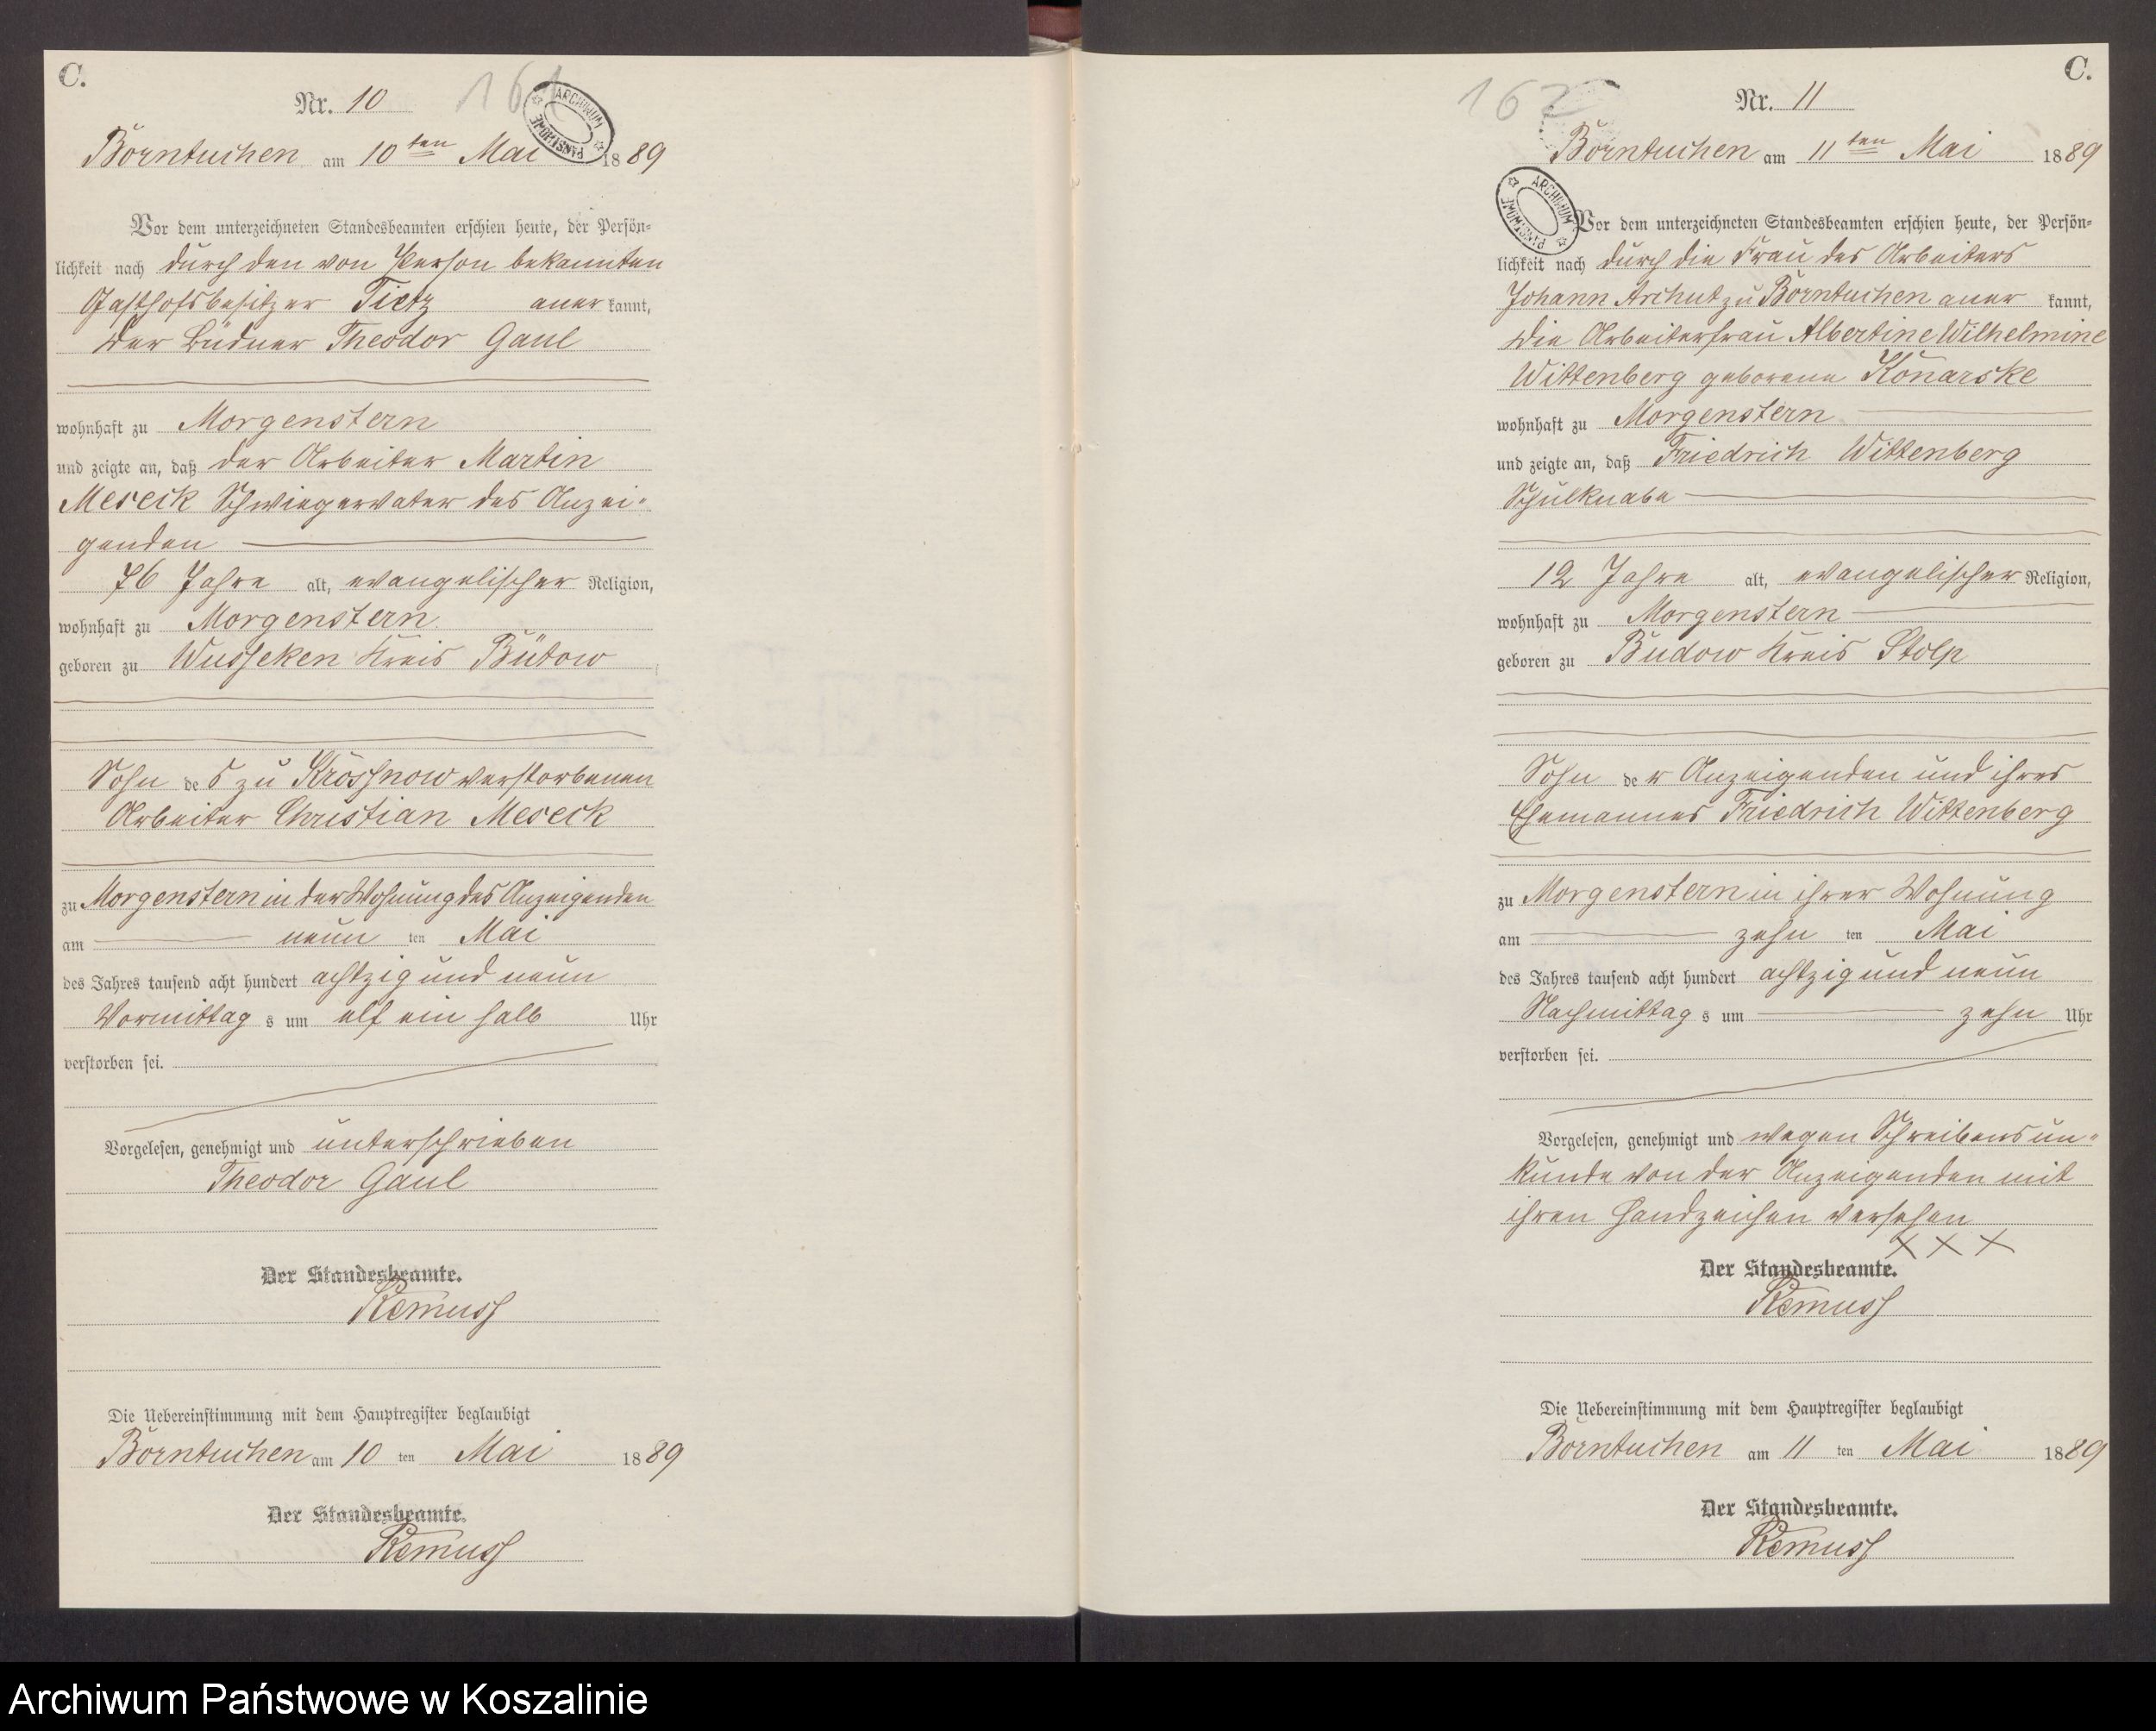 C.
Nr. 10
161
ARCHIWUM PAŃSTWOWE
Borntuchen am 10ten Mai 1889
Vor dem unterzeichneten Standesbeamten erschien heute, der Persön-
lichkeit nach durch den von Person bekannten
Gasthofsbesitzer Tietz anerkannt,
der Büdner Theodor Gaul
wohnhaft zu Morgenstern
und zeigte an, daß der Arbeiter Martin
Meseck Schwiegervater des Anzei-
genden
76 Jahre alt, evangelischer Religion,
wohnhaft zu Morgenstern
geboren zu Wusseken Kreis Bütow
Sohn des zu Krossnow verstorbenen
Arbeiter Christian Meseck
zu Morgenstern in der Wohnung des Anzeigenden
am neun ten Mai
des Jahres tausend acht hundert achtzig und neun
Vormittag s um elf ein halb Uhr
verstorben sei.
Vorgelesen, genehmigt und unterschrieben
Theodor Gaul
Der Standesbeamte.
Remuss
Die Uebereinstimmung mit dem Hauptregister beglaubigt
Borntuchen am 10 ten Mai 1889
Der Standesbeamte.
Remuss
C.
Nr. 11
162
Borntuchen am 11ten Mai 1889
ARCHIWUM PAŃSTWOWE
Vor dem unterzeichneten Standesbeamten erschien heute, der Persön-
lichkeit nach durch die Frau des Arbeiters
Johann Archut zu Borntuchen anerkannt,
die Arbeiterfrau Albertine Wilhelmine
Wittenberg geborene Konarske
wohnhaft zu Morgenstern
und zeigte an, daß Friedrich Wittenberg
Schulknabe
12 Jahre alt, evangelischer Religion,
wohnhaft zu Morgenstern
geboren zu Budow Kreis Stolp
Sohn der Anzeigenden und ihres
Ehemannes Friedrich Wittenberg
zu Morgenstern in ihrer Wohnung
am zehn ten Mai
des Jahres tausend acht hundert achtzig und neun
Nachmittag s um zehn Uhr
verstorben sei.
Vorgelesen, genehmigt und wegen Schreibensun-
kunde von der Anzeigenden mit
ihren Handzeichen versehen
XXX
Der Standesbeamte.
Remuss
Die Uebereinstimmung mit dem Hauptregister beglaubigt
Borntuchen am 11 ten Mai 1889
Der Standesbeamte.
Remuss
Archiwum Państwowe w Koszalinie